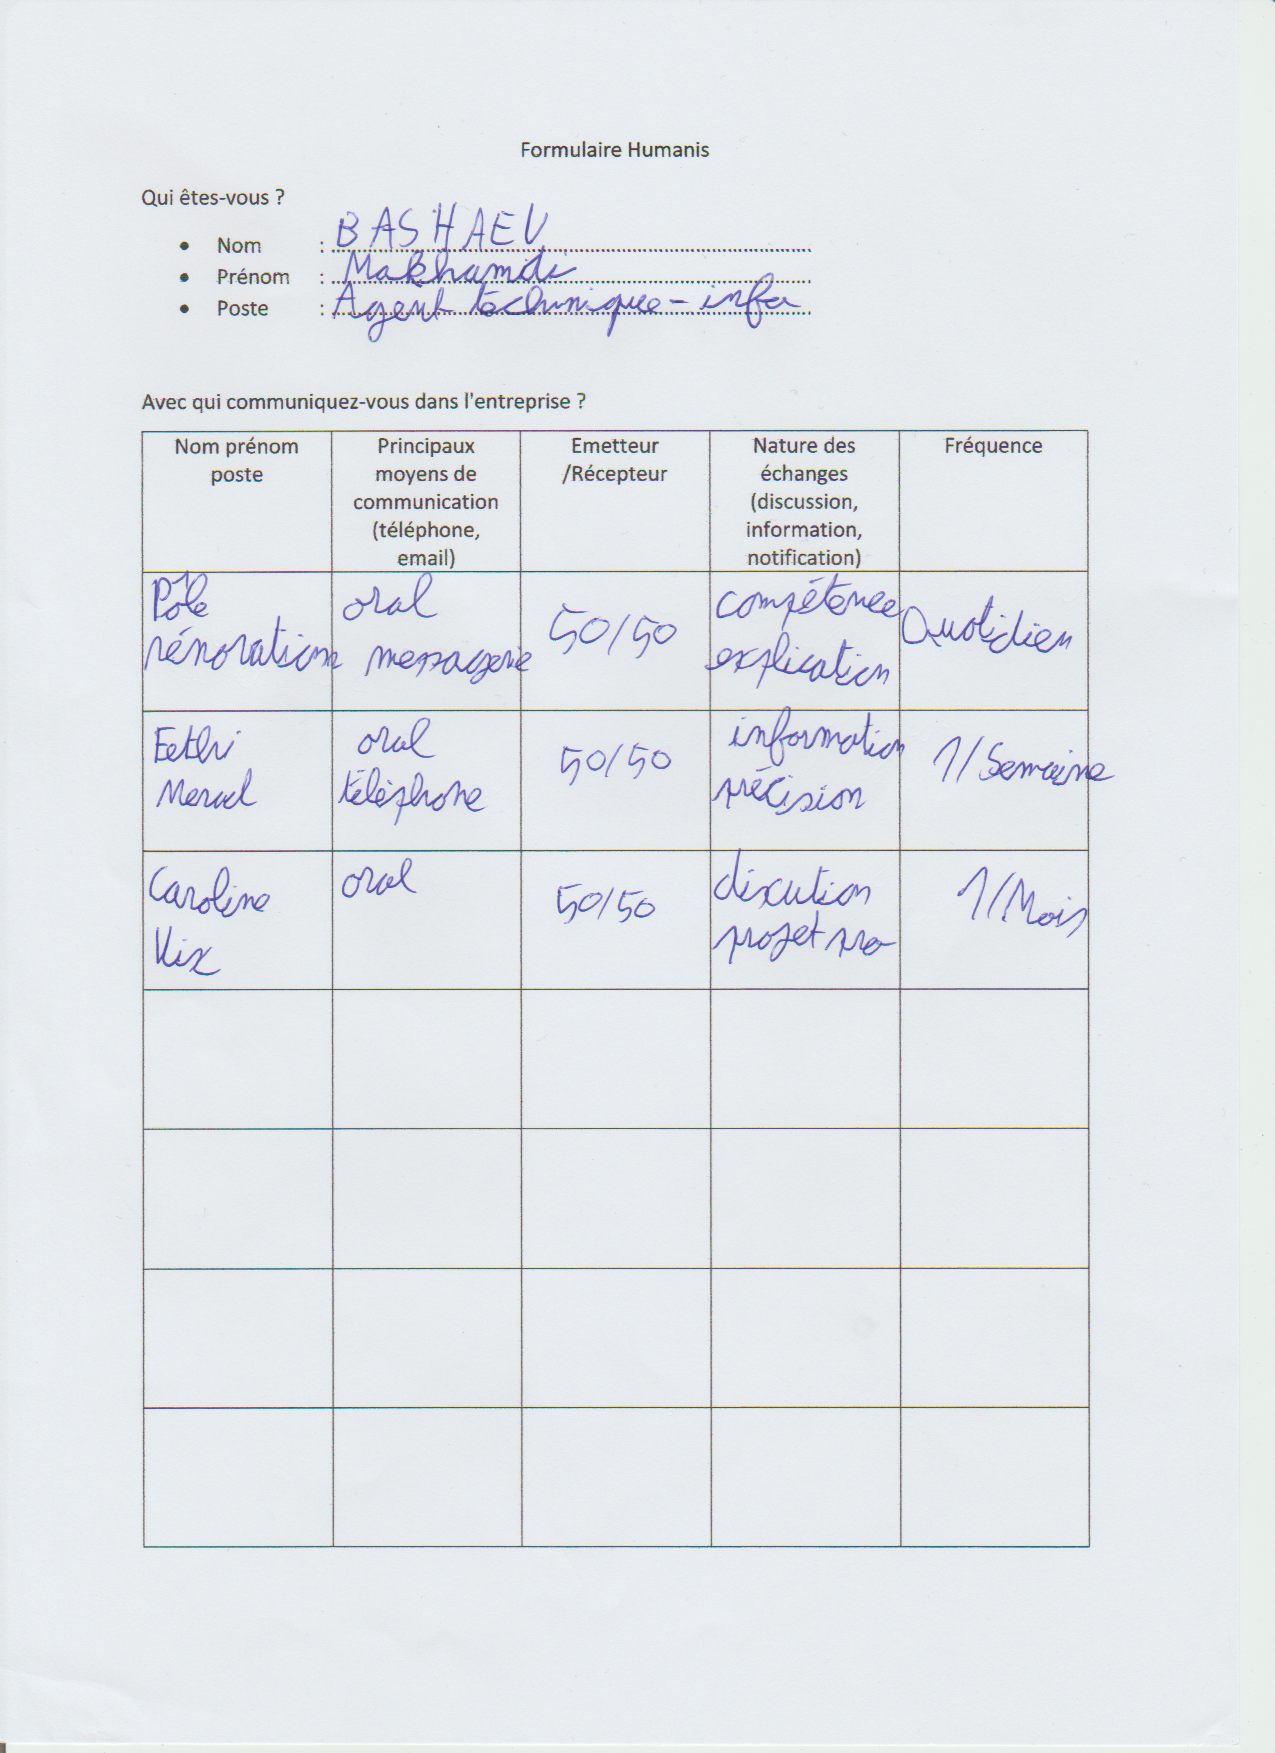 Formulaire Humanis
Qui êtes-vous ?
• Nom : BASHAEV
• Prénom : Makhamdi
• Poste : Agent technique - info
Avec qui communiquez-vous dans l'entreprise ?
Nom prénom
poste
Principaux
moyens de
communication
(téléphone,
email)
Emetteur
/Récepteur
Nature des
échanges
(discussion,
information,
notification)
Fréquence
Pôle
rénovation
oral
messagerie
50/50
compétence
explication
Quotidien
Fethi
oral
téléphone
50/50
information
précision
1/Semaine
Caroline
Vix
oral
50/50
discution
projet pro
1/Mois